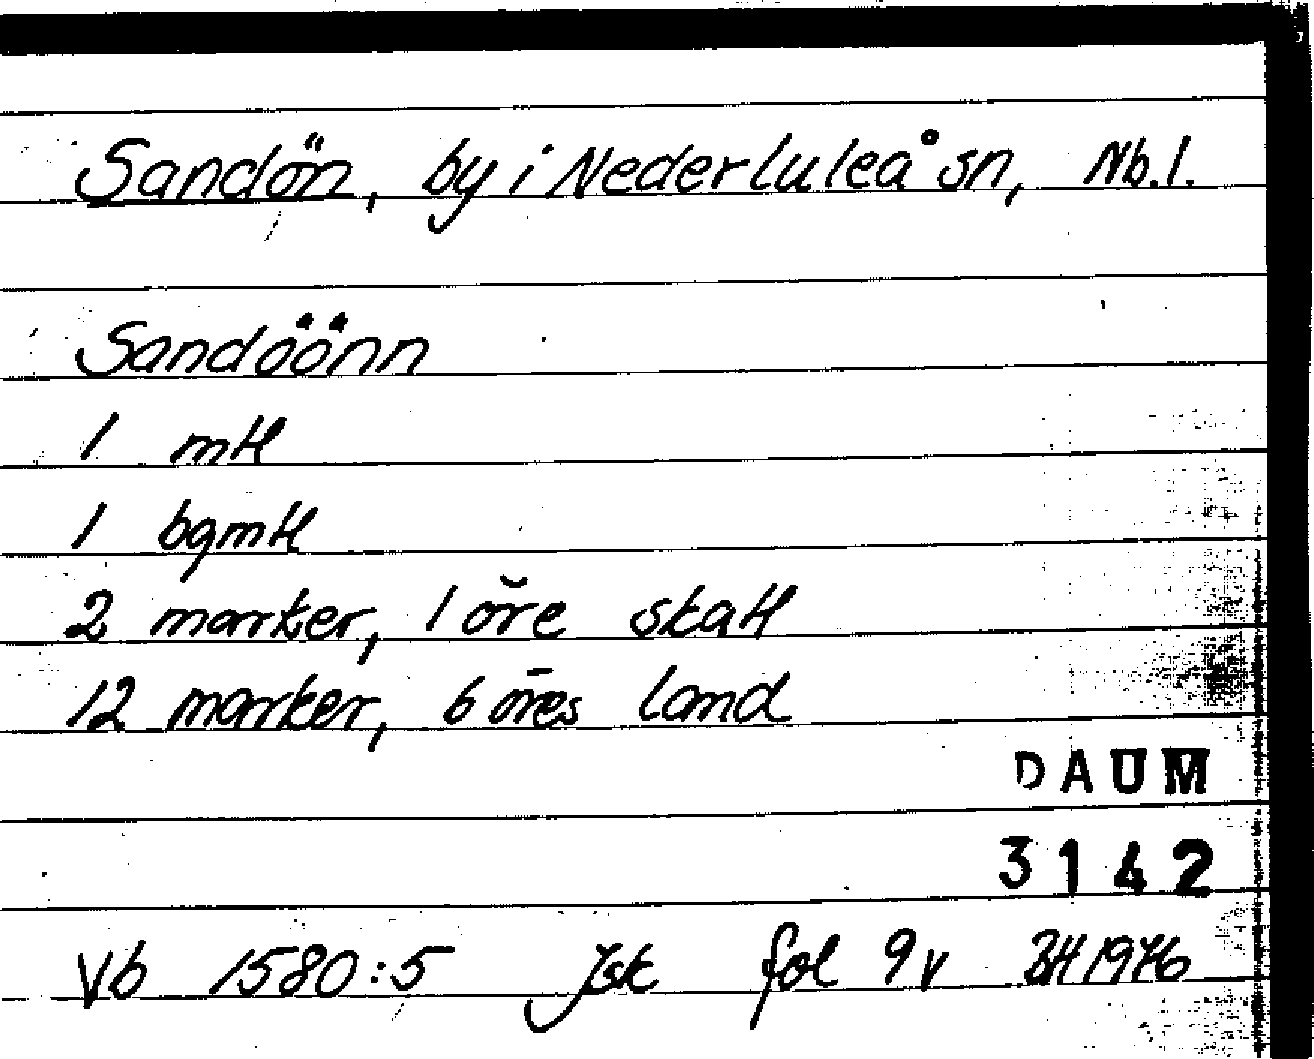 Sandön, by i Nederluleå sn, Nb.l.
Sandöönn
1 mtl
1 bgmtl
2 marker, 1 öre skatt
12 marker, 6 öres land
DAUM
3142
Vb 1580:5 Jsk fol 9v BH 1976